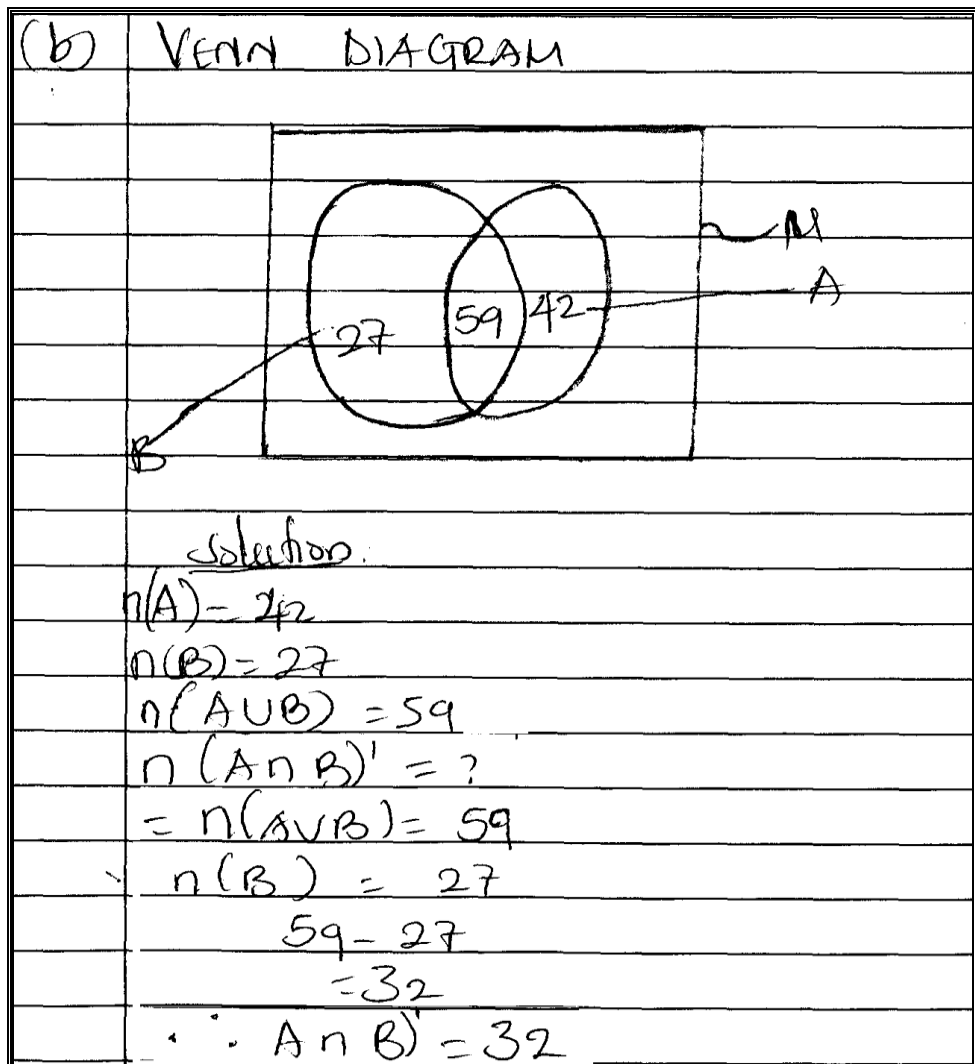 (b) VENN DIAGRAM
M
A
27 59 42
B
Solution.
n(A) = 42
n(B) = 27
n(A∪B) = 59
n(A∩B)' = ?
= n(A∪B) = 59
n(B) = 27
59 - 27
= 32
∴ A∩B)' = 32